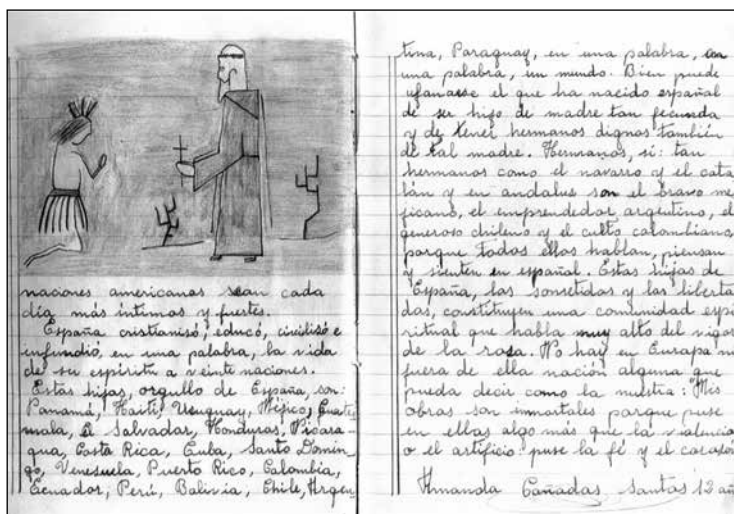 naciones americanas sean cada
día más íntimas y fuertes.
España cristianizó, educó, civilizó e
infundió, en una palabra, la vida
de su espíritu a veinte naciones.
Estas hijas, orgullo de España, son:
Panamá, Haití, Uruguay, Méjico, Guate-
mala, El Salvador, Honduras, Nicara-
gua, Costa Rica, Cuba, Santo Domin-
go, Venezuela, Puerto Rico, Colombia,
Ecuador, Perú, Bolivia, Chile, Argen-
tina, Paraguay, en una palabra, con
una palabra, un mundo. Bien puede
ufanarse el que ha nacido español
de ser hijo de madre tan fecunda
y de tener hermanos dignos también
de tal madre. Hermanos, sí: tan
hermanos como el navarro y el cata-
lán y en andaluz son el bravo me-
jicano, el emprendedor argentino, el
generoso chileno y el culto colombiano
porque todos ellos hablan, piensan
y sienten en español. Estas hijas de
España, las sometidas y las liberta-
das, constituyen una comunidad espi-
ritual que habla muy alto del vigor
de la raza. No hay en Europa ni
fuera de ella nación alguna que
pueda decir como la nuestra: "Mis
obras son inmortales porque puse
en ellas algo más que la violencia
o el artificio: puse la fé y el corazón
Amanda Cañadas Santos 12 añ